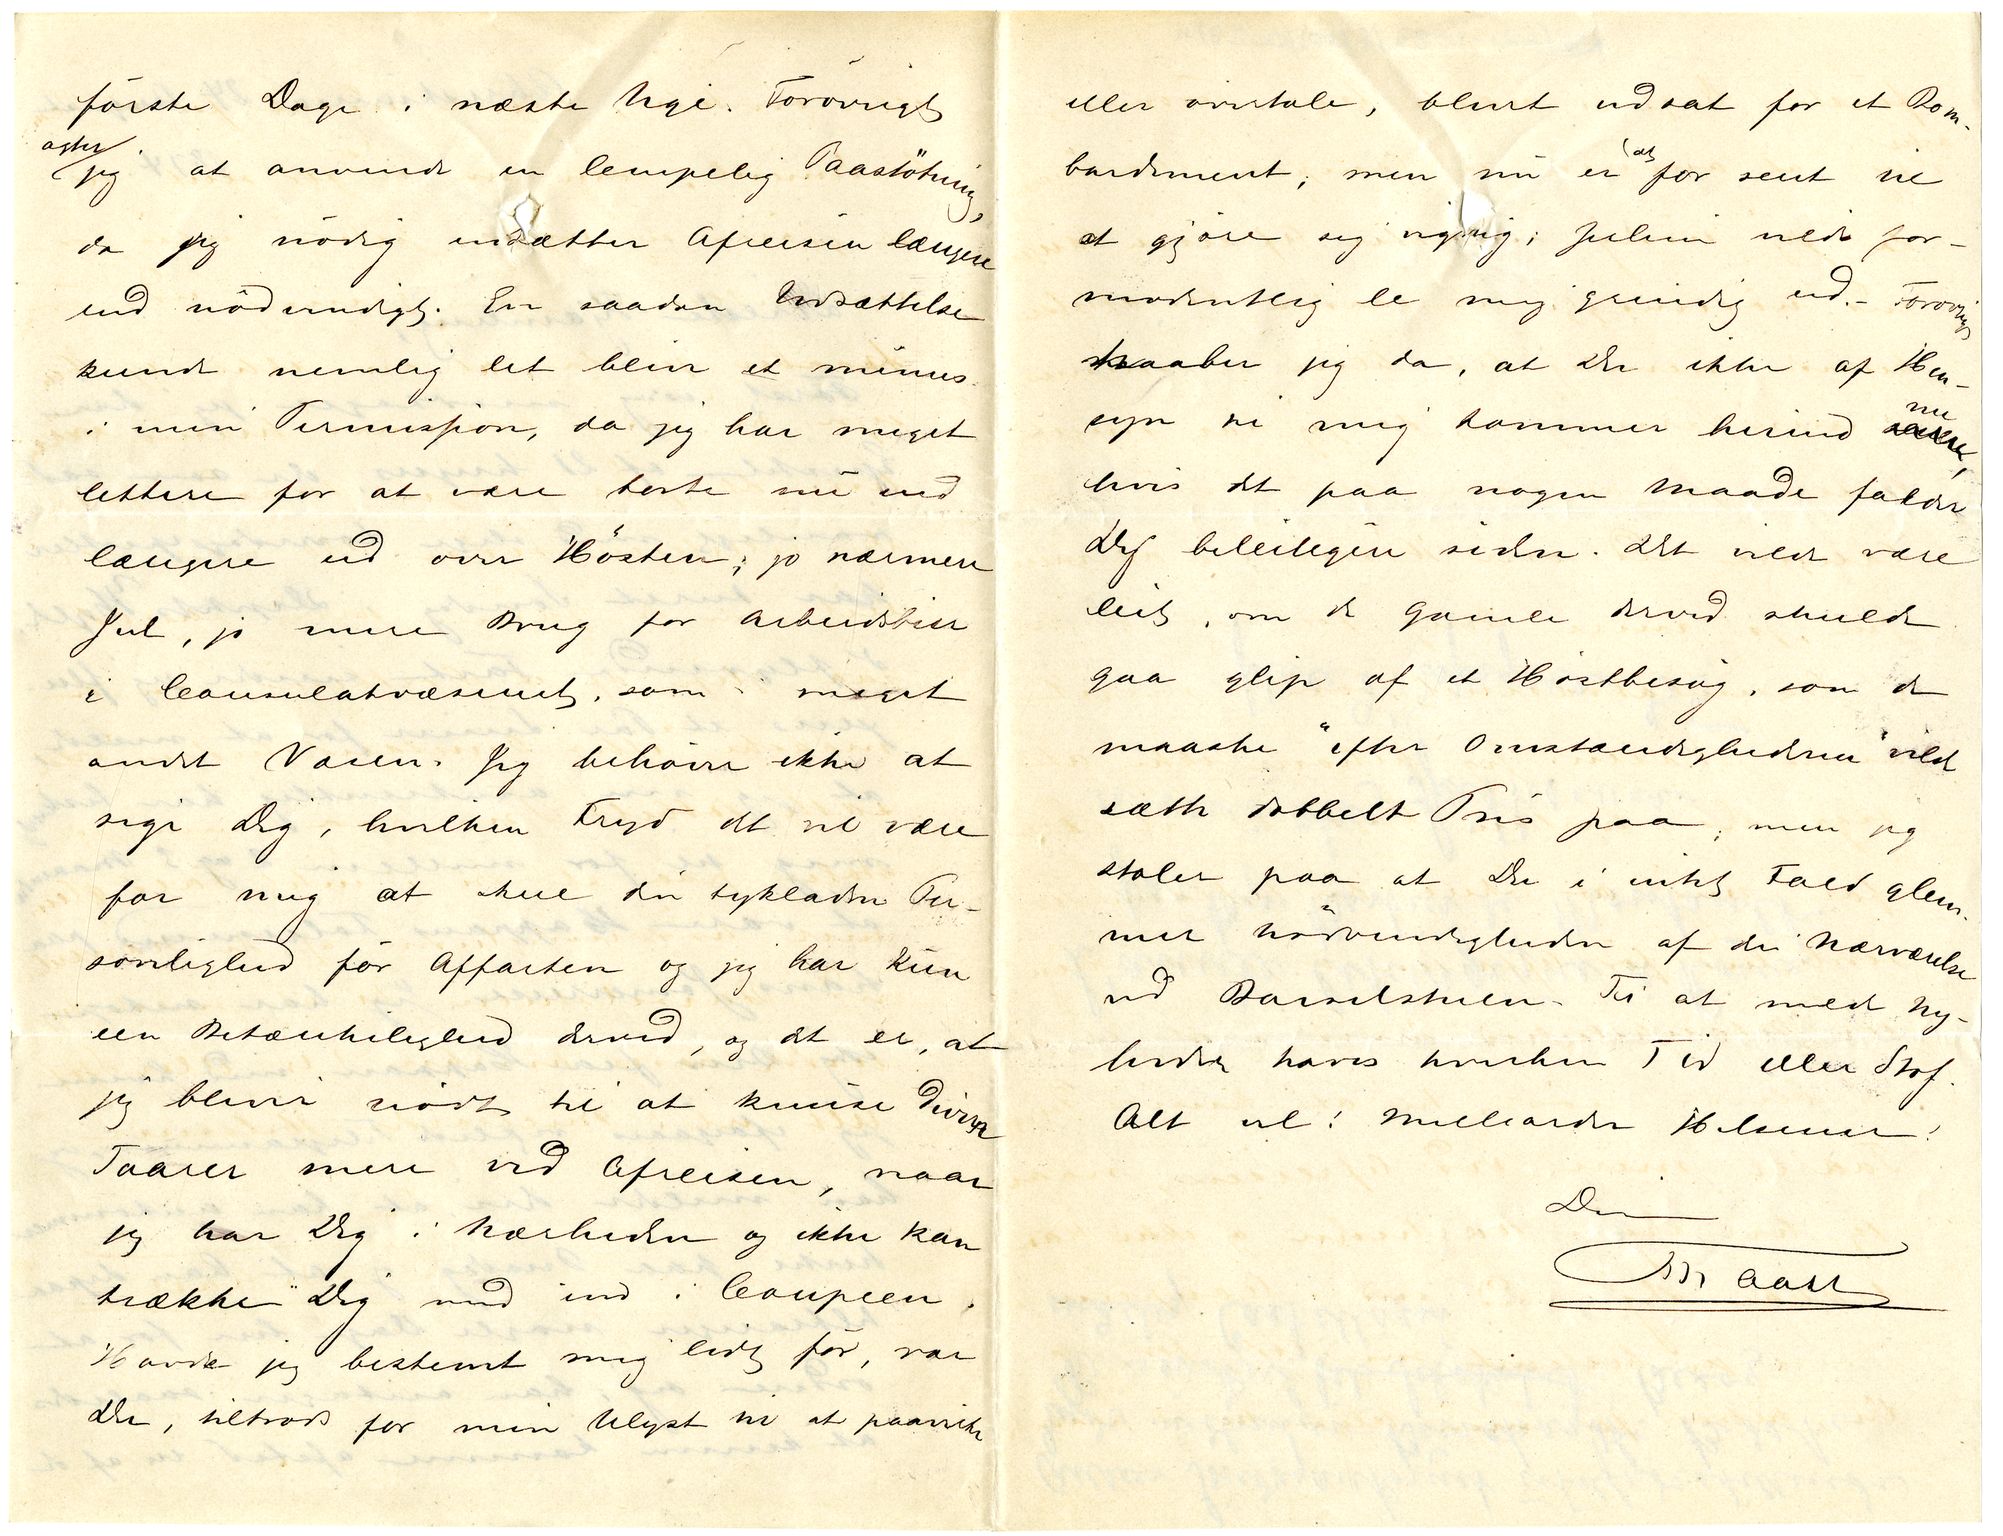 förste Dage i næste Uge. Forövrigt
agter
jeg at anvende en lempelig Paastötning,
da jeg nödig udsætter Afreisen længere
end nödvendigt. En saadan Udsættelse
kunde nemlig let blive et minus
i min Permission, da jeg har meget
lettere for at være borte nu end
længere ud over Hösten; jo nærmere
Jul, jo mere Brug for Arbeidsbier
i Consulatvæsenet, som i meget
andet Væsen. Jeg behöver ikke at
sige Dig, hvilken Fryd det vil være
for mig at hilse din tykladne Per-
sonlighed för Affarten og jeg har kun
een Betænkelighed derved, og det er, at
jeg bliver nödt til at knuse diverse
Taarer mere ved Afreisen, naar
jeg har Dig i Nærheden og ikke kan
trække Dig med ind i Coupeen.
Havde jeg bestemt mig lidt för, var
Du, tiltrods for min Ulyst til at paavirke
eller overtale, blevet udsat for et Bom-
bardement; men nu er det for sent til
at gjöre sig vigtig; Julius vilde for-
modentlig le mig grundig ud. – Forövrigt
haaber jeg da, at Du ikke af Hen-
syn til mig kommer herind nu
hvis det paa nogen Maade falder
Dig beleiligere siden. Det vilde være
leit, om de Gamle derved skulde
gaa glip af et Höstbesög, som de
maaske "efter Omstændighederne" vilde
sætte dobbelt Pris paa; men jeg
stoler paa at Du i intet Fald glem-
mer Nödvendigheden af din Nærværelse
ved Barselstuen. Til at melde Ny-
heder haves hverken Tid eller Stof.
Alt vel! Milliarder Hilsener!
Din